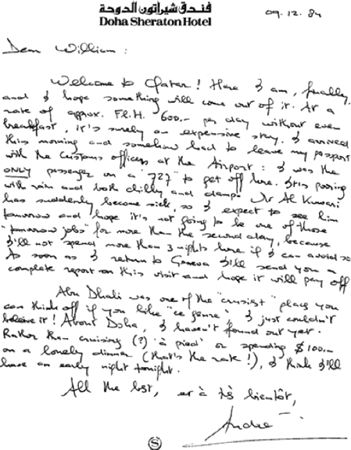 فندق شيراتون الدوحة
Doha Sheraton Hotel
09.12.84
Dear William:
Welcome to Qatar! Here I am, finally,
and I hope something will come out of it. At a
rate of approx. Fl.H. 600.- per day without even
breakfast, it's surely an expensive stay. I arrived
this morning and somehow had to leave my passport
with the customs officer at the Airport: I was the
ONLY passenger on a 727 to get off here. It's pouring
with rain and both chilly and damp. Mr Al Kuwari
has suddenly become sick, so I expect to see him
tomorrow and hope it's not going to be one of those
"tomorrow jobs" for more than the second day, because
I'll not spend more than 3 nights here if I can avoid so
As soon as I return to Geneva I'll send you a
complete report on this visit and hope it will pay off
Abu Dhabi was one of the "cruisiest" places you
can think off if you like "ce genre". I just couldn't
believe it! About Doha, I haven't found out yet.
Rather than cruising (?) "à pied" or spending $100.-
on a lonely dinner (that's the rate!), I think I'll
have an early night tonight.
All the best, et à très bientôt,
André
S